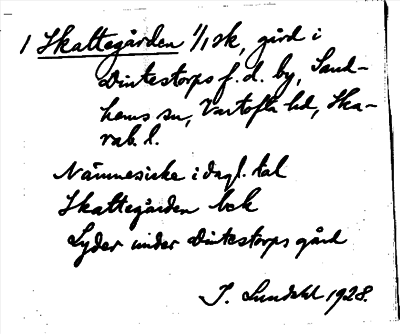 1 Skattegården 1/1 sk, gård i
Dintestorps f. d. by, Sand-
hems sn, Vartofta hd, Ska-
rab. l.
Nämnes icke i dagl. tal
Skattegården bok
Lyder under Dintestorps gård
J. Sundahl 1928.